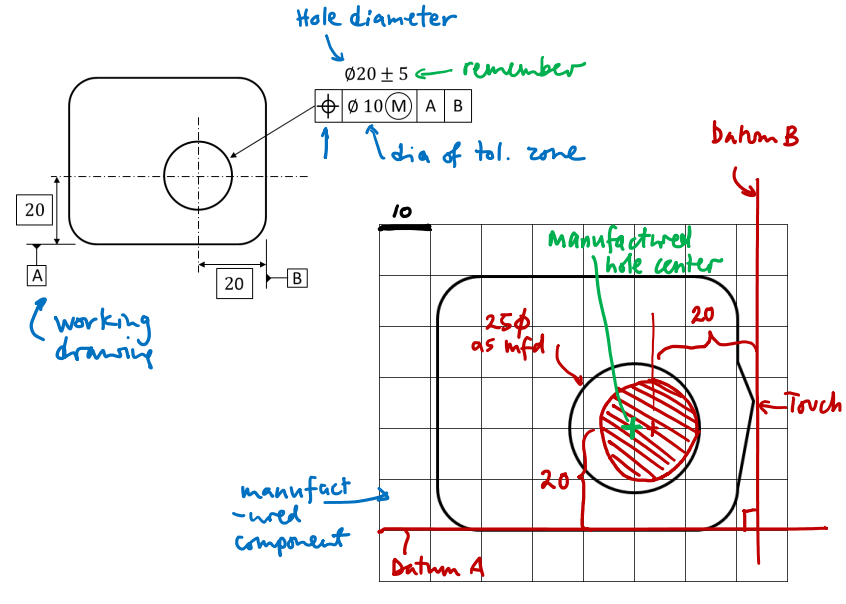 Hole diameter
Ø20 ± 5 remember
Ø 10 Ⓜ A B
dia of tol. zone
20
A
20
B
working
drawing
10
Datum B
manufactured
hole center
25ϕ
as mfd
20
Touch
20
manufact
-ured
component
Datum A